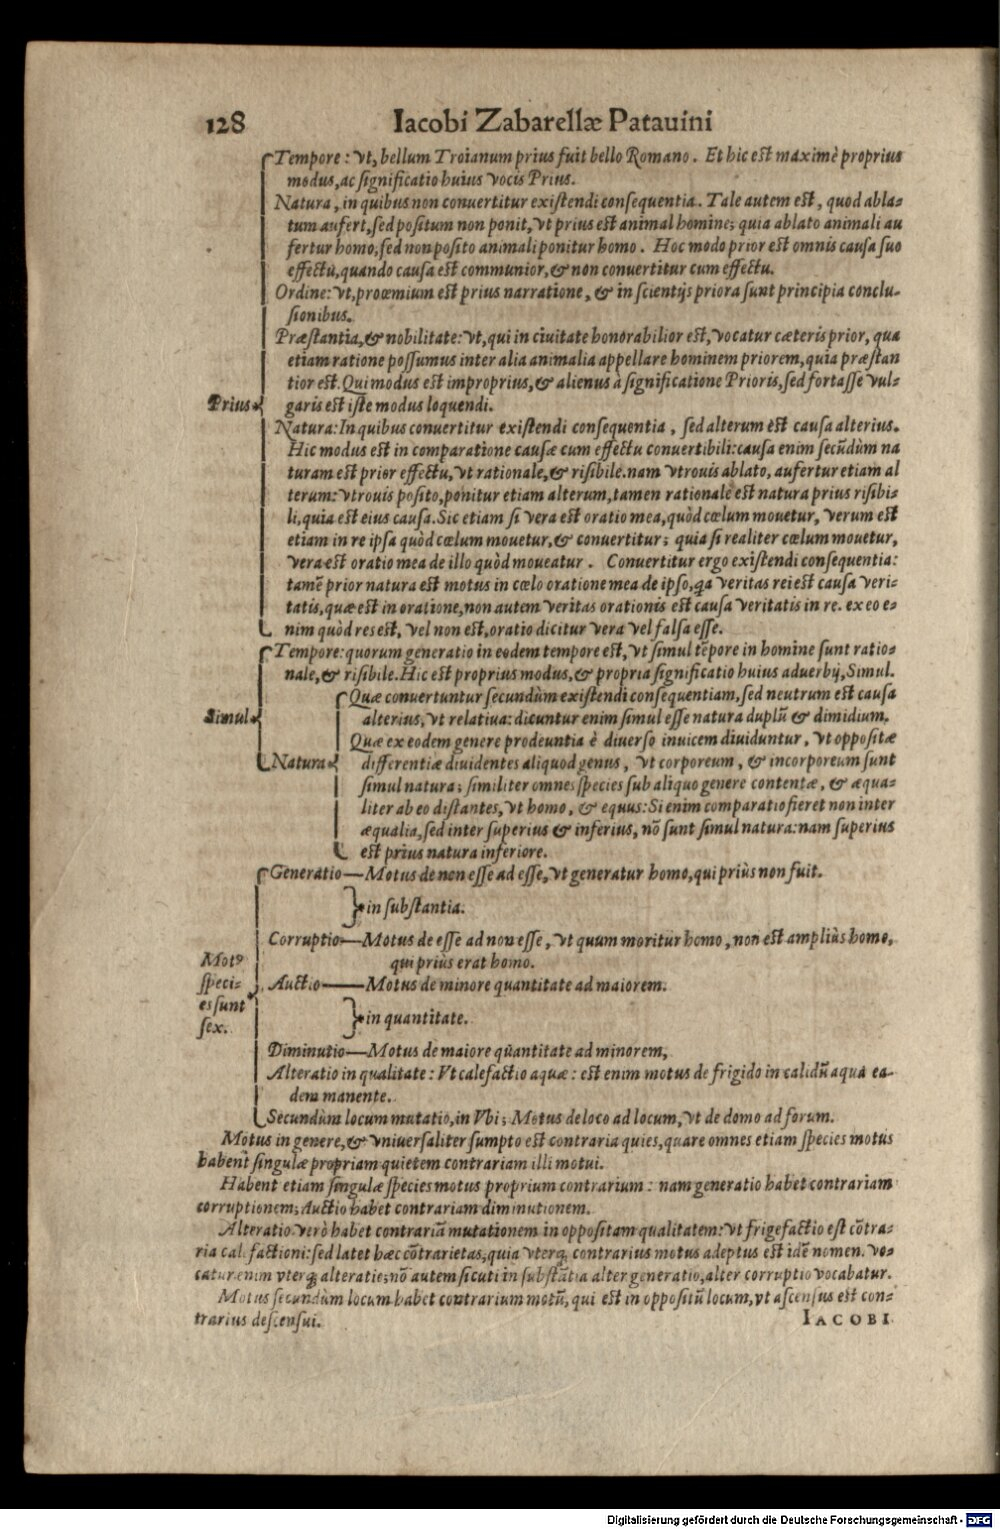 128 Iacobi Zabarellæ Patauini
Tempore: vt, bellum Troianum prius fuit bello Romano. Et hic est maximè proprius
modus, ac significatio huius vocis Prius.
Natura, in quibus non conuertitur existendi consequentia. Tale autem est, quod abla-
tum aufert, sed positum non ponit, vt prius est animal homine; quia ablato animali au
fertur homo; sed non posito animali ponitur homo. Hoc modo prior est omnis causa suo
effectu, quando causa est communior, & non conuertitur cum effectu.
Ordine: vt, proœmium est prius narratione, & in scientijs priora sunt principia conclu-
sionibus.
Præstantia, & nobilitate: vt, qui in ciuitate honorabilior est, vocatur cæteris prior, qua
etiam ratione possumus inter alia animalia appellare hominem priorem, quia præstan
tior est. Qui modus est improprius, & alienus à significatione Prioris, sed fortasse vul-
Prius garis est iste modus loquendi.
Natura: In quibus conuertitur existendi consequentia, sed alterum est causa alterius.
Hic modus est in comparatione causæ cum effectu conuertibili: causa enim secūdùm na
turam est prior effectu, vt rationale, & risibile. nam vtrouis ablato, aufertur etiam al
terum: vtrouis posito, ponitur etiam alterum, tamen rationale est natura prius risibi-
li, quia est eius causa. Sic etiam si vera est oratio mea, quòd cœlum mouetur, verum est
etiam in re ipsa quòd cœlum mouetur, & conuertitur; quia si realiter cœlum mouetur,
vera est oratio mea de illo quòd moueatur. Conuertitur ergo existendi consequentia:
tamē prior natura est motus in cœlo oratione mea de ipso, qa veritas rei est causa veri-
tatis, quæ est in oratione, non autem veritas orationis est causa veritatis in re. ex eo e-
nim quòd res est, vel non est, oratio dicitur vera vel falsa esse.
Tempore: quorum generatio in eodem tempore est, vt simul tēpore in homine sunt ratio-
nale, & risibile. Hic est proprius modus, & propria significatio huius aduerbij, Simul.
Quæ conuertuntur secundùm existendi consequentiam, sed neutrum est causa
Simul alterius, vt relatiua: dicuntur enim simul esse natura duplū & dimidium.
Quæ ex eodem genere prodeuntia è diuerso inuicem diuiduntur, vt oppositæ
Natura differentiæ diuidentes aliquod genus, vt corporeum, & incorporeum sunt
simul natura; similiter omnes species sub aliquo genere contentæ, & æqua-
liter ab eo distantes, vt homo, & equus: Si enim comparatio fieret non inter
æqualia, sed inter superius & inferius, nō sunt simul natura: nam superius
est prius natura inferiore.
Generatio—Motus de non esse ad esse, vt generatur homo, qui priùs non fuit.
in substantia.
Corruptio—Motus de esse ad non esse, vt quum moritur homo, non est ampliùs homo,
qui priùs erat homo.
Motꝰ
speci-
es sunt
sex.
Auctio—Motus de minore quantitate ad maiorem.
in quantitate.
Diminutio—Motus de maiore quantitate ad minorem,
Alteratio in qualitate: Vt calefactio aquæ: est enim motus de frigido in calidū aqua ea-
dem manente.
Secundùm locum mutatio, in Vbi; Motus de loco ad locum, vt de domo ad forum.
Motus in genere, & vniuersaliter sumpto est contraria quies, quare omnes etiam species motus
habent singulæ propriam quietem contrariam illi motui.
Habent etiam singulæ species motus proprium contrarium: nam generatio habet contrariam
corruptionem; Auctio habet contrariam diminutionem.
Alteratio verò habet contrariā mutationem in oppositam qualitatem: vt frigefactio est cōtra-
ria calefactioni: sed latet hæc cōtrarietas, quia vterq; contrarius motus adeptus est idē nomen. vo-
catur enim vterq; alteratio; nō autem sicuti in substātia alter generatio, alter corruptio vocabatur.
Motus secundùm locum habet contrarium motū, qui est in oppositū locum, vt ascensus est con-
trarius descensui. IACOBI
Digitalisierung gefördert durch die Deutsche Forschungsgemeinschaft - DFG